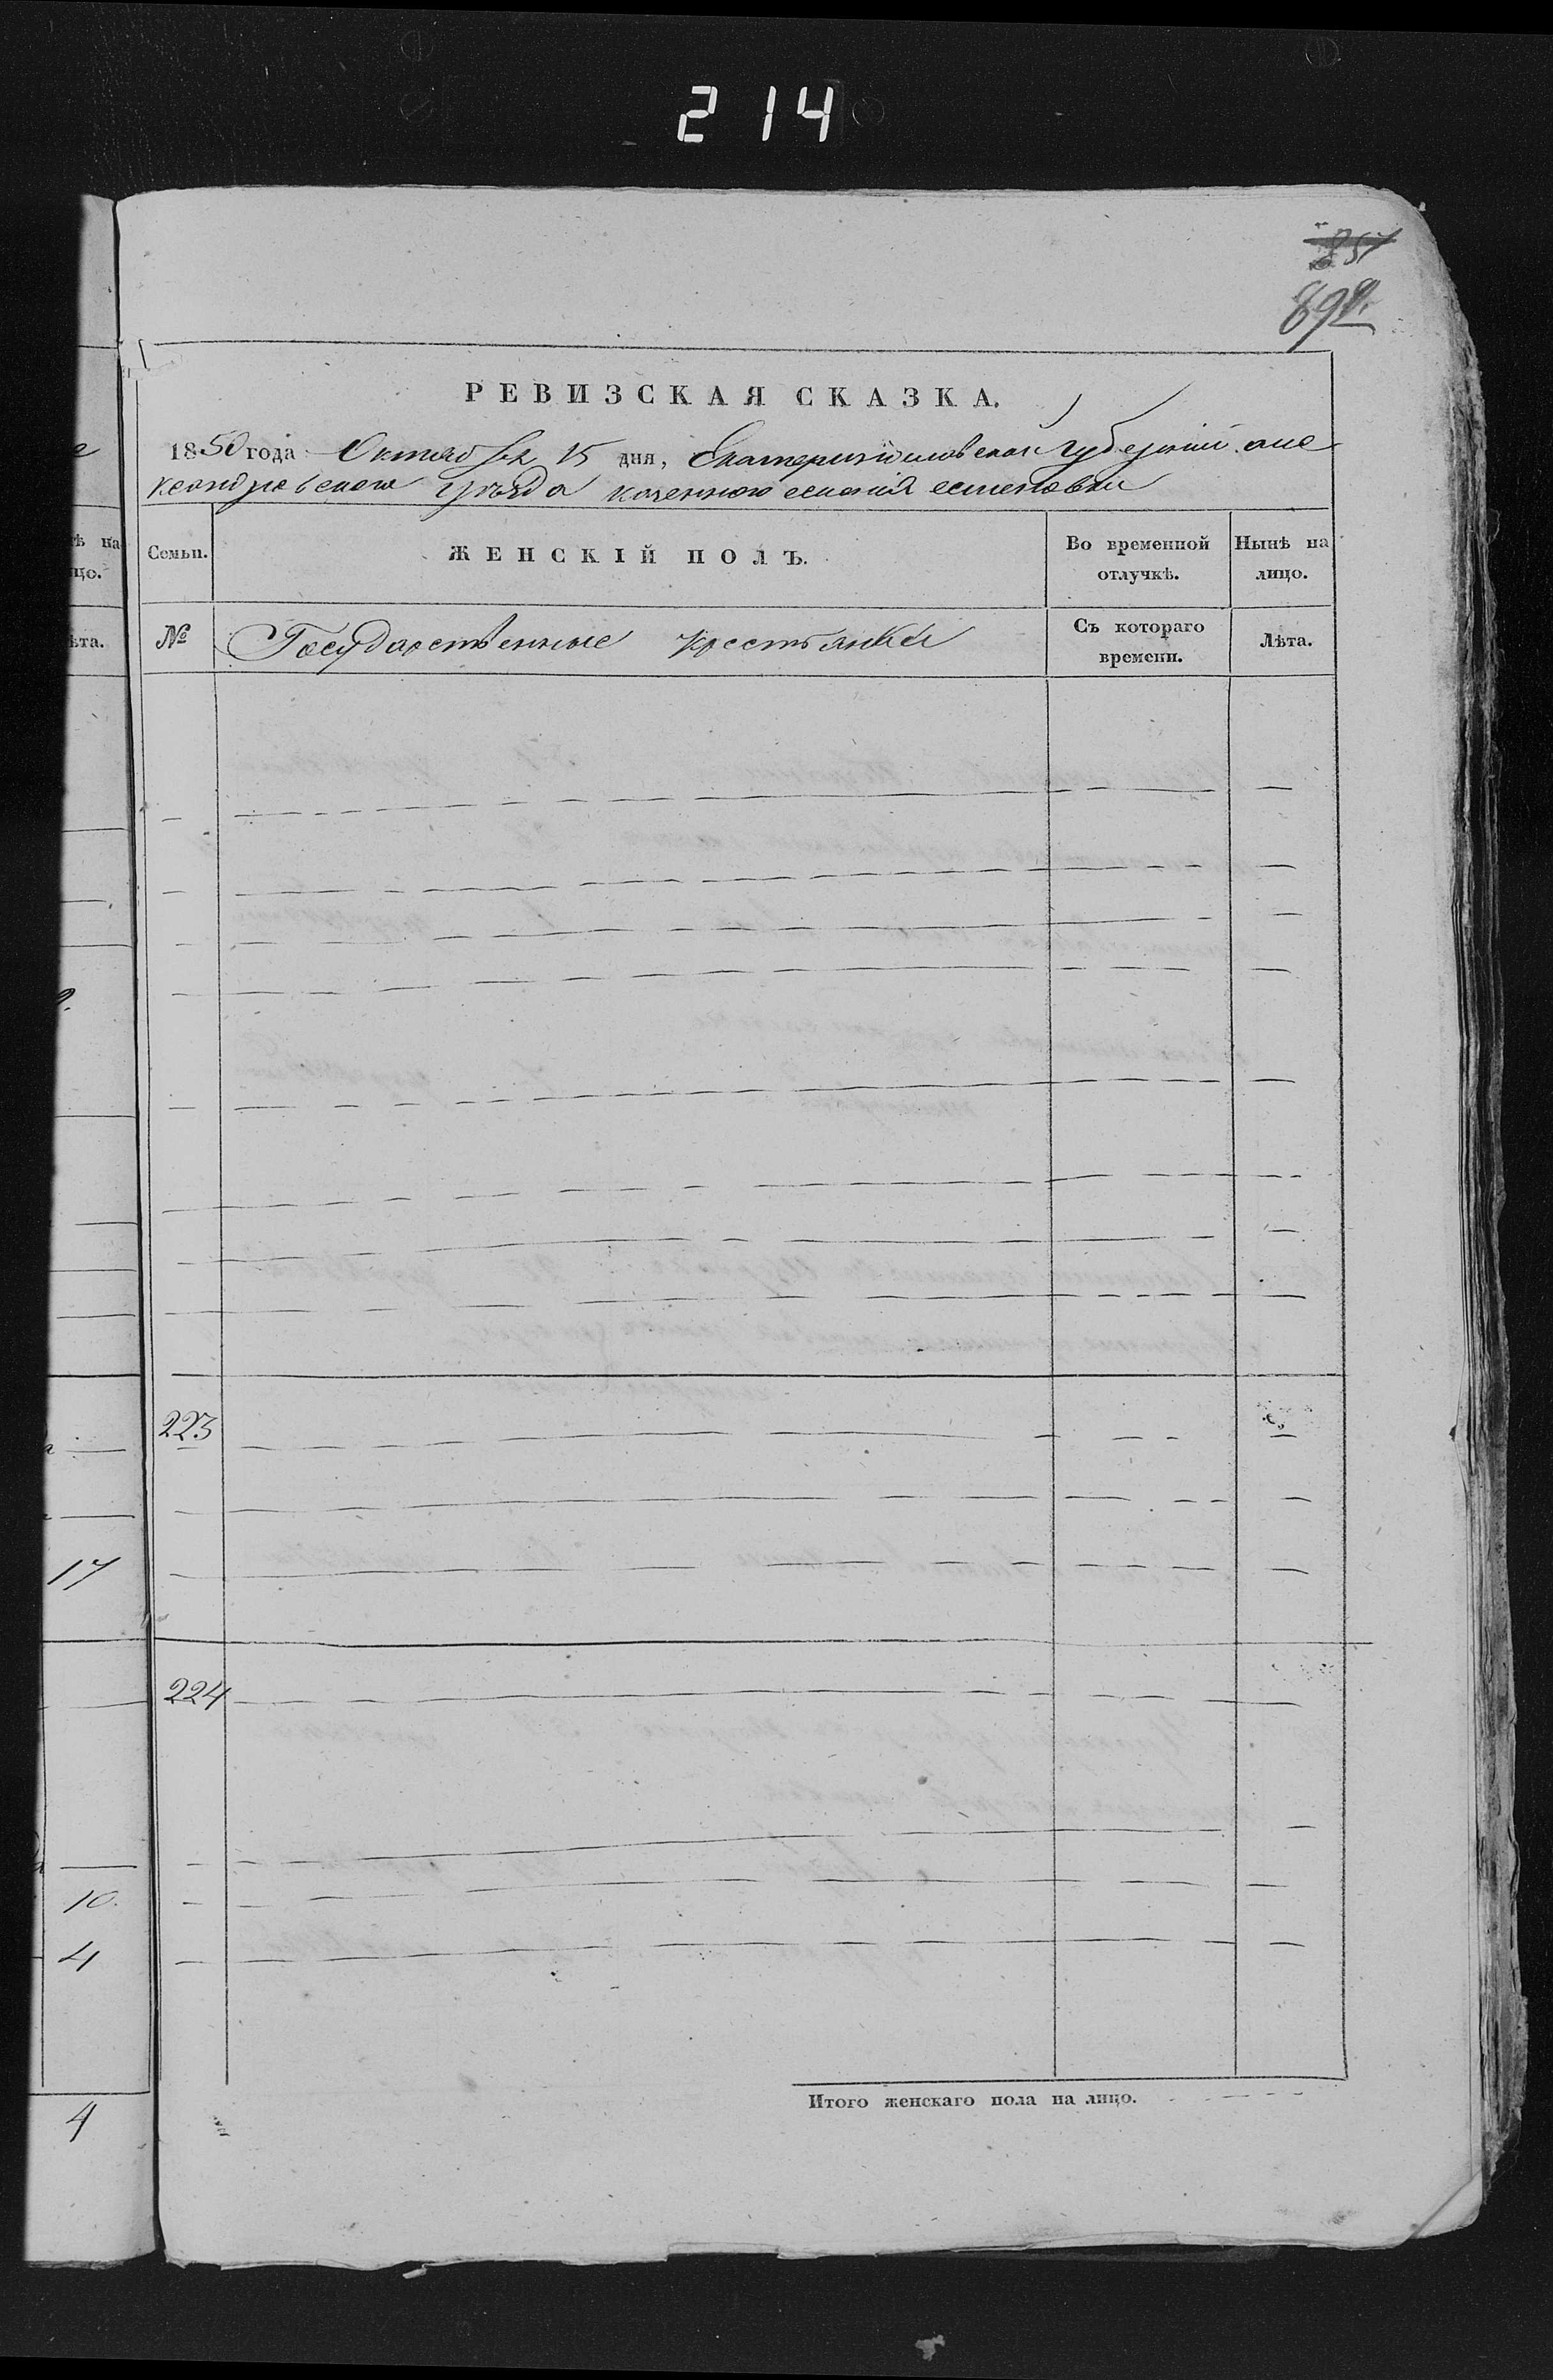 214
892
РЕВИЗСКАЯ СКАЗКА.
1850 года Октября 15 дня, Екатеринославской Губернии Але
ксандровского Уезда казенного селения
Семьи. ЖЕНСКІЙ ПОЛЪ. Во временной отлучкѣ. Нынѣ на лицо.
№ Государственные крестьянки Съ котораго времени. Лѣта.
223
224
17
10.
4
4
Итого женскаго пола на лицо.